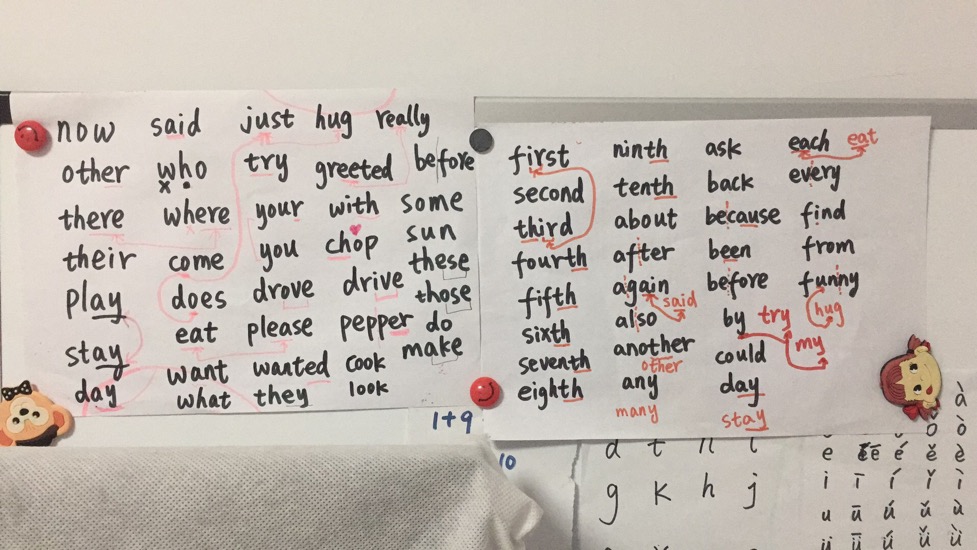 now said just hug really
other who try greeted before
x
there where your with some
their come you chop sun
these
play does drove drive those
stay eat please pepper do
make
want wanted cook
day what they look
1+9
10
first ninth ask each eat
second tenth back every
third about because find
fourth after been from
fifth again before funny
said hug
sixth also by try my
seventh another could
other
eighth any day
many stay
g k h j
à
ǒ ò
e ē é ě è
i ī í ǐ ì
u ū ú ǔ ù